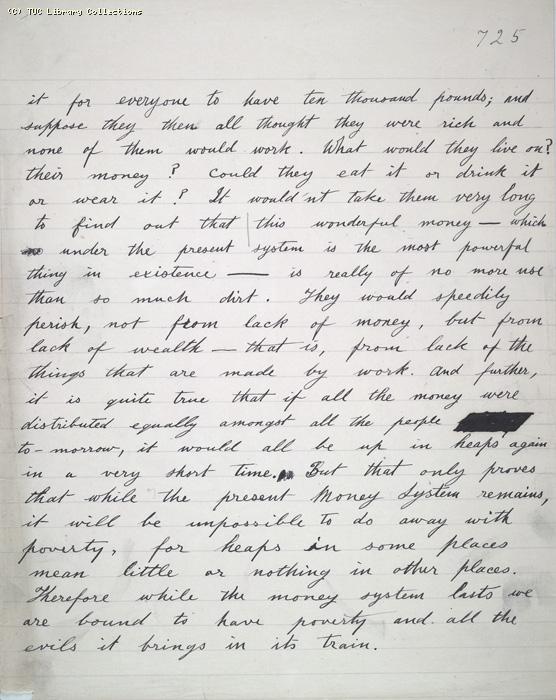 (C) TUC Library Collections
725
it for everyone to have ten thousand pounds; and
suppose they then all thought they were rich and
none of them would work. What would they live on?
their money? Could they eat it or drink it
or wear it? It would'nt take them very long
to find out that this wonderful money — which
under the present system is the most powerful
thing in existence — is really of no more use
than so much dirt. They would speedily
perish, not from lack of money, but from
lack of wealth — that is, from lack of the
things that are made by work. And further,
it is quite true that if all the money were
distributed equally amongst all the people
to-morrow, it would all be up in heaps again
in a very short time. But that only proves
that while the present Money System remains,
it will be impossible to do away with
poverty, for heaps in some places
mean little or nothing in other places.
Therefore while the money system lasts we
are bound to have poverty and all the
evils it brings in its train.